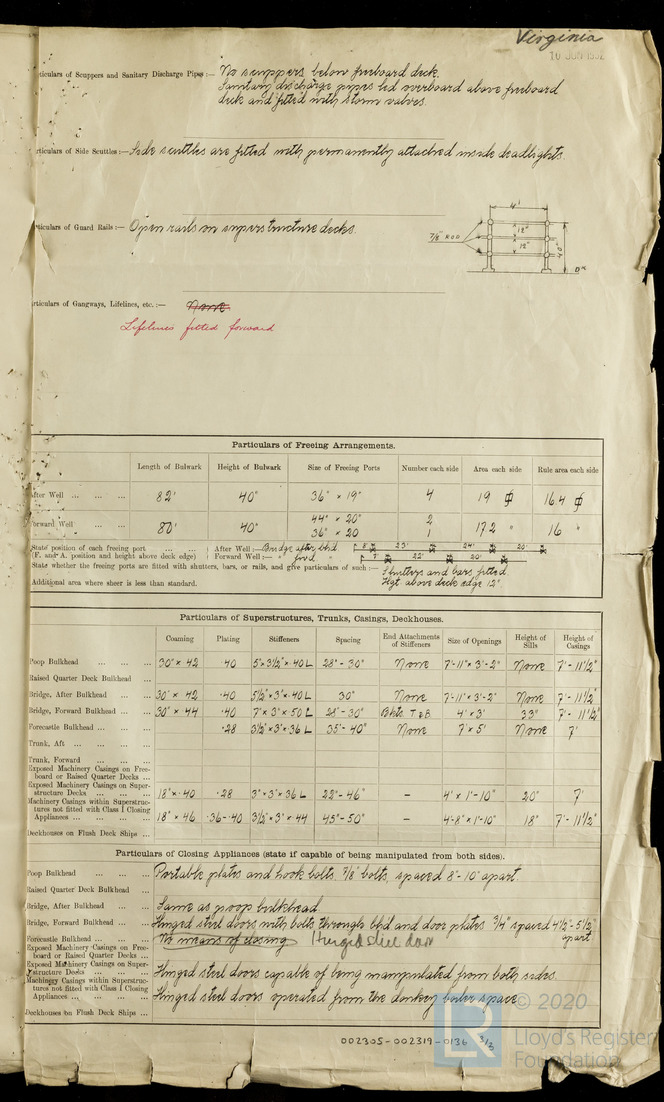 Virginia
10 JUN 1932
rticulars of Scuppers and Sanitary Discharge Pipes :— No scuppers below freeboard deck.
Sanitary discharge pipes led overboard above freeboard
deck and fitted with storm valves.
rticulars of Side Scuttles :— Side scuttles are fitted with permanently attached inside deadlights.
rticulars of Guard Rails :— Open rails on superstructure decks.
4'
7/8" ROD
12"
12"
40"
DK
rticulars of Gangways, Lifelines, etc. :— None
Lifelines fitted forward
Particulars of Freeing Arrangements.
Length of Bulwark Height of Bulwark Size of Freeing Ports Number each side Area each side Rule area each side
After Well ... ... ... 82' 40" 36" × 19" 4 19 16.4
44" × 20" 2
Forward Well ... ... 80' 40" 36" × 20 1 17.2 " 16 "
State position of each freeing port ... ... After Well :— Bridge after bhd. 8' 23' 24' 20'
(F. and A. position and height above deck edge) Forward Well :— " fwd " 7' 22' 20'
State whether the freeing ports are fitted with shutters, bars, or rails, and give particulars of such :— Shutters and bars fitted
Hgt above deck edge 12"
Additional area where sheer is less than standard.
Particulars of Superstructures, Trunks, Casings, Deckhouses.
Coaming Plating Stiffeners Spacing End Attachments of Stiffeners Size of Openings Height of Sills Height of Casings
Poop Bulkhead ... ... ... 30" × 42 .40 5" × 3 1/2" × .40 L 28" - 30" None 7'-11" × 3'-2" None 7'-11 1/2"
Raised Quarter Deck Bulkhead
Bridge, After Bulkhead ... ... 30" × 42 .40 5 1/2" × 3" × .40 L 30" None 7'-11" × 3'-2" None 7'-11 1/2"
Bridge, Forward Bulkhead ... ... 30" × 44 .40 7" × 3" × 50 L 28" - 30" Bkts T & B 4' × 3' 33" 7'-11 1/2"
Forecastle Bulkhead ... ... ... .28 3 1/2" × 3" × 36 L 35" - 40" None 7' × 5' None 7'
Trunk, Aft ... ... ...
Trunk, Forward ... ... ...
Exposed Machinery Casings on Free-
board or Raised Quarter Decks ...
Exposed Machinery Casings on Super-
structure Decks ... ... ... 18" × .40 .28 3" × 3" × 36 L 22" - 46" - 4' × 1'-10" 20" 7'
Machinery Casings within Superstruc-
tures not fitted with Class I Closing
Appliances ... ... ... 18" × 46 .36-.40 3 1/2" × 3" × 44 45" - 50" - 4'-8" × 1'-10" 18" 7'-11 1/2"
Deckhouses on Flush Deck Ships ...
Particulars of Closing Appliances (state if capable of being manipulated from both sides).
Poop Bulkhead ... ... ... Portable plates and hook bolts 7/8" bolts, spaced 8"-10" apart
Raised Quarter Deck Bulkhead ...
Bridge, After Bulkhead ... ... Same as poop bulkhead
Bridge, Forward Bulkhead ... ... Hinged steel doors with bolts through bhd and door plates 3/4" spaced 4 1/2"-5 1/2" apart
Forecastle Bulkhead ... ... ... No means of closing Hinged steel door
Exposed Machinery Casings on Free-
board or Raised Quarter Decks ...
Exposed Machinery Casings on Super-
structure Decks ... ... ... Hinged steel doors capable of being manipulated from both sides.
Machinery Casings within Superstruc-
tures not fitted with Class I Closing
Appliances ... ... ... Hinged steel doors operated from the donkey boiler space
Deckhouses on Flush Deck Ships ...
002305-002319-0136 3/3
LR
© 2020
Lloyd's Register
Foundation